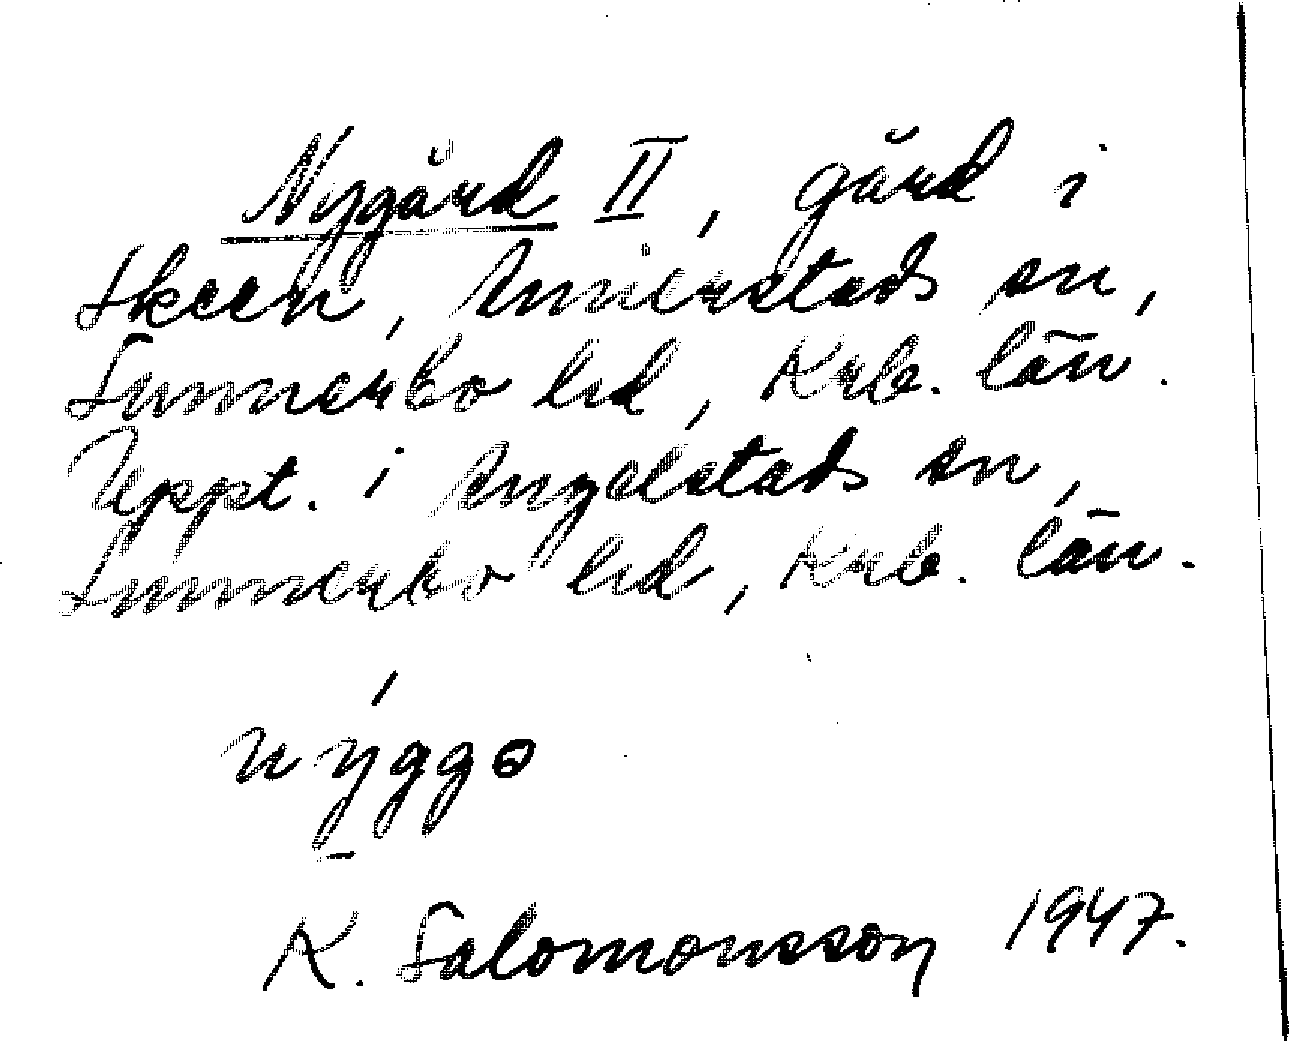 Nygård II, gård i
Skeen, Annerstads sn,
Sunnerbo hd, Krb. län.
Uppt. i Angelstads sn,
Sunnerbo hd, Krb. län.
nýggo
K. Salomonsson 1947.